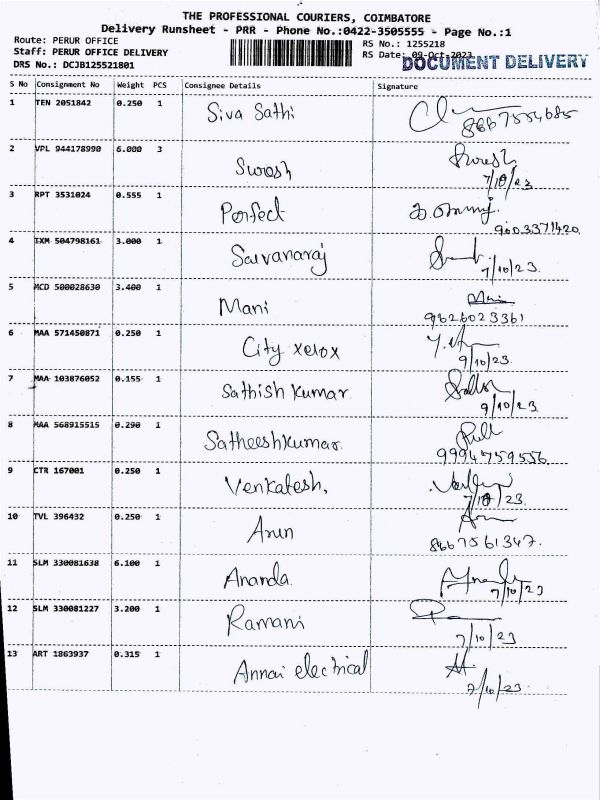 THE PROFESSIONAL COURIERS, COIMBATORE
Delivery Runsheet - PRR - Phone No.:0422-3505555 - Page No.:1
Route: PERUR OFFICE
RS No.: 1255218
Staff: PERUR OFFICE DELIVERY
RS Date: 09-Oct-2023
DOCUMENT DELIVERY
DRS No.: DCJB125521801
S No Consignment No Weight PCS Consignee Details Signature
1 TEN 2051842 0.250 1 Siva Sathi
2 VPL 944178990 6.000 3 Suresh Suresh
7/10/23
3 RPT 3531024 0.555 1 Perfect
9003371420
4 IXM 504798161 3.000 1 Sarvanaraj
7/10/23.
5 MCD 500028630 3.400 1 Mani Mani
9626023361
6 MAA 571450871 0.250 1 City xerox
9/10/23.
7 MAA 103876052 0.155 1 Sathish Kumar
9/10/23
8 MAA 568915515 0.290 1 Satheeshkumar.
9994759556
9 CTR 167001 0.250 1 Venkatesh,
7/10/23.
10 TVL 396432 0.250 1 Arun
8667561347.
11 SLM 330081638 6.100 1 Ananda.
7/10/23
12 SLM 330081227 3.200 1 Ramani
7/10/23
13 ART 1863937 0.315 1 Annai electrical
7/10/23.